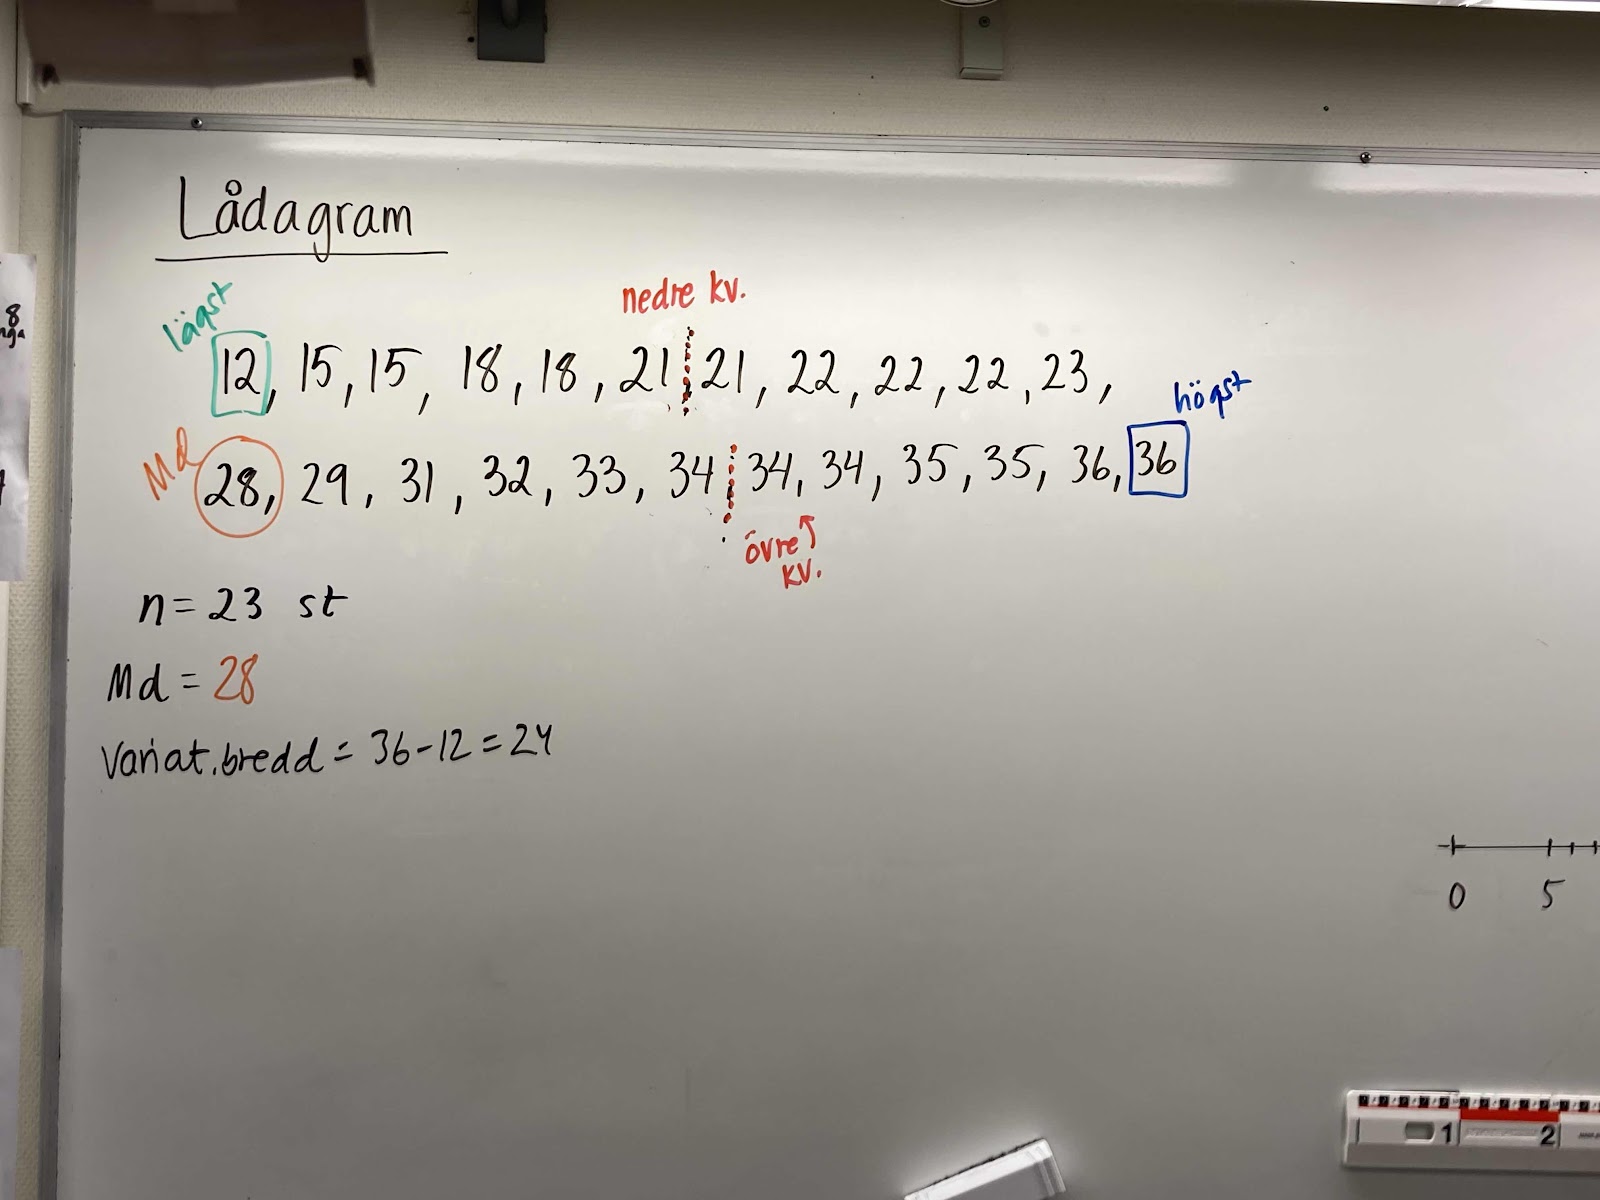 Lådagram
nedre kv.
lägst
12, 15, 15, 18, 18, 21, 21, 22, 22, 22, 23,
högst
Md
28, 29, 31, 32, 33, 34, 34, 34, 35, 35, 36, 36
övre
kv.
n = 23 st
Md = 28
Variat.bredd = 36-12 = 24
0 5
1 2
8